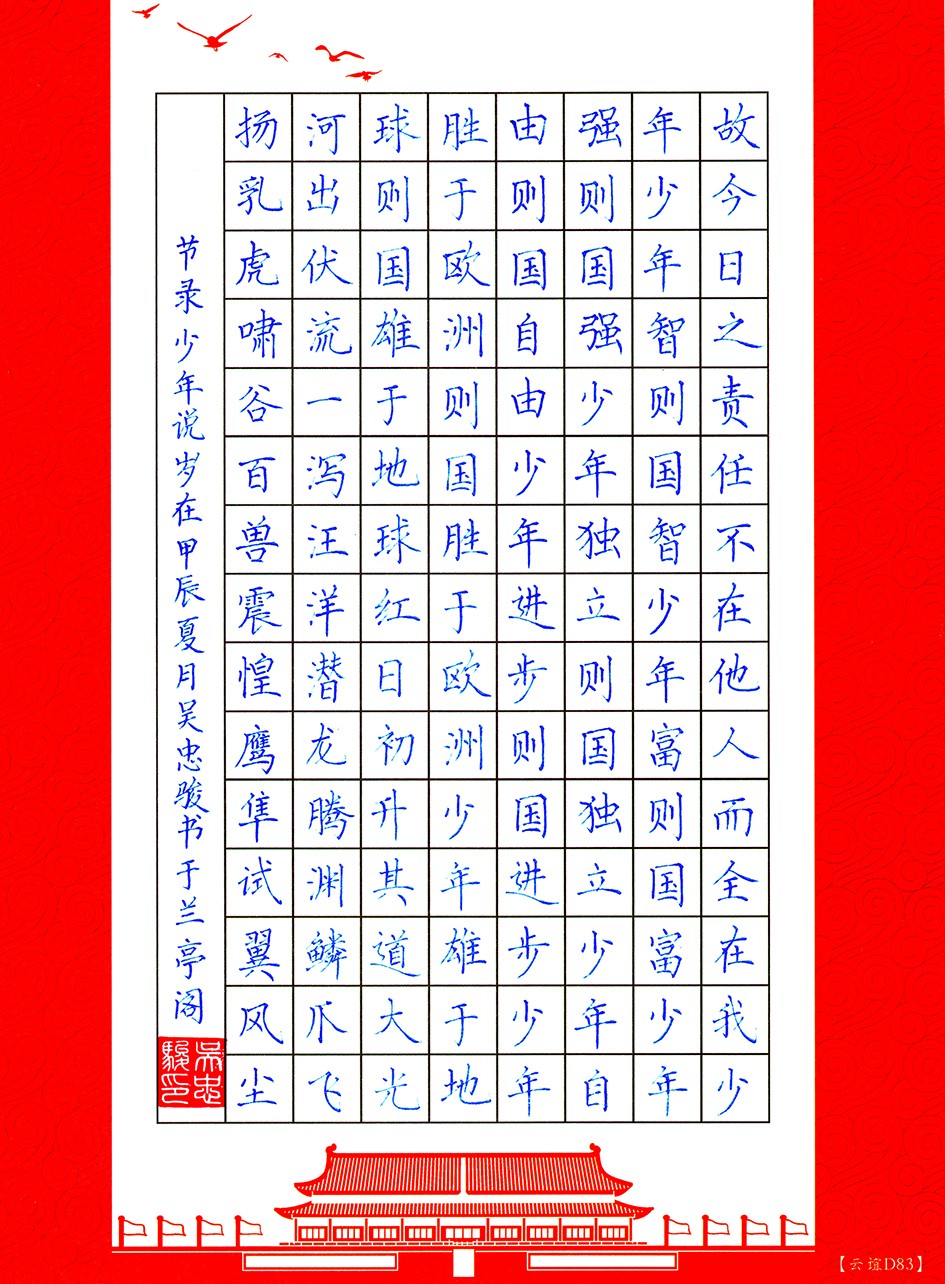 故今日之责任不在他人而全在我少
年少年智则国智少年富则国富少年
强则国强少年独立则国独立少年自
由则国自由少年进步则国进步少年
胜于欧洲则国胜于欧洲少年雄于地
球则国雄于地球红日初升其道大光
河出伏流一泻汪洋潜龙腾渊鳞爪飞
扬乳虎啸谷百兽震惶鹰隼试翼风尘
节录少年说岁在甲辰夏月吴忠骏书于兰亭阁
吴忠骏印
【云谊D83】